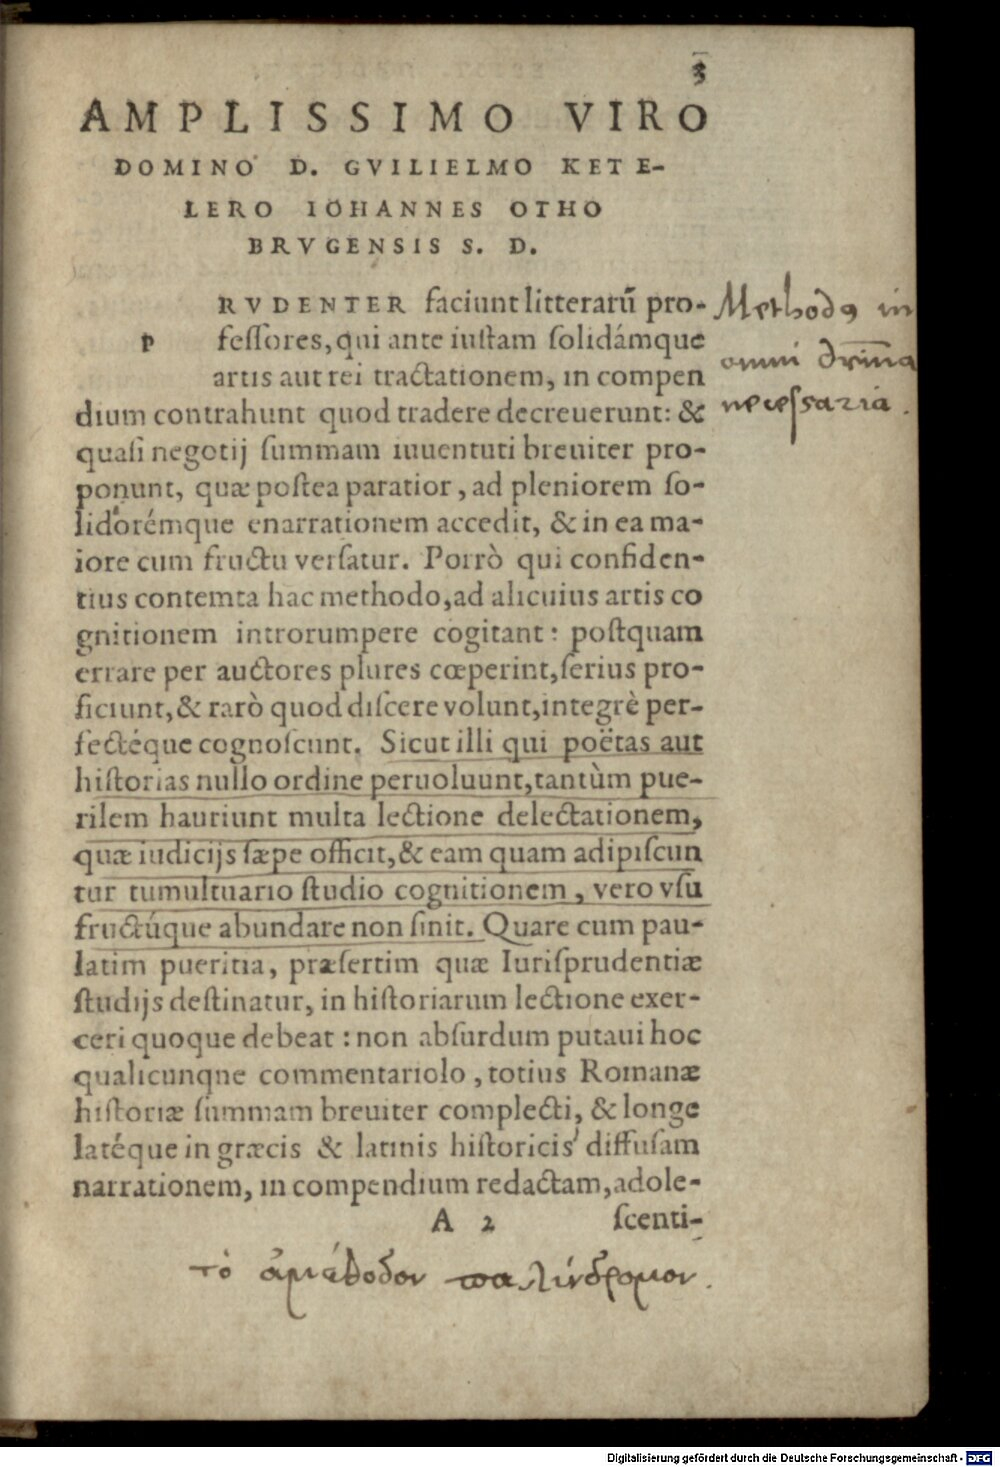 3
AMPLISSIMO VIRO
DOMINO D. GVILIELMO KETE-
LERO IOHANNES OTHO
BRVGENSIS S. D.
P
RVDENTER faciunt litterarū pro-
fessores, qui ante iustam solidámque
artis aut rei tractationem, in compen
dium contrahunt quod tradere decreuerunt: &
quasi negotij summam iuuentuti breuiter pro-
ponunt, quæ postea paratior, ad pleniorem so-
lidorémque enarrationem accedit, & in ea ma-
iore cum fructu versatur. Porrò qui confiden-
tius contemta hac methodo, ad alicuius artis co
gnitionem introrumpere cogitant: postquam
errare per auctores plures cœperint, serius pro-
ficiunt, & rarò quod discere volunt, integrè per-
fectéque cognoscunt. Sicut illi qui poëtas aut
historias nullo ordine peruoluunt, tantùm pue-
rilem hauriunt multa lectione delectationem,
quæ iudicijs sæpe officit, & eam quam adipiscun
tur tumultuario studio cognitionem, vero vsu
fructúque abundare non sinit. Quare cum pau-
latim pueritia, præsertim quæ Iurisprudentiæ
studijs destinatur, in historiarum lectione exer-
ceri quoque debeat: non absurdum putaui hoc
qualicunqne commentariolo, totius Romanæ
historiæ summam breuiter complecti, & longe
latéque in græcis & latinis historicis diffusam
narrationem, in compendium redactam, adole-
A 2 scenti-
Methodꝰ in
omni drīna
necessaria.
τὸ ἀμέθοδον παλίνδρομον.
Digitalisierung gefördert durch die Deutsche Forschungsgemeinschaft - DFG